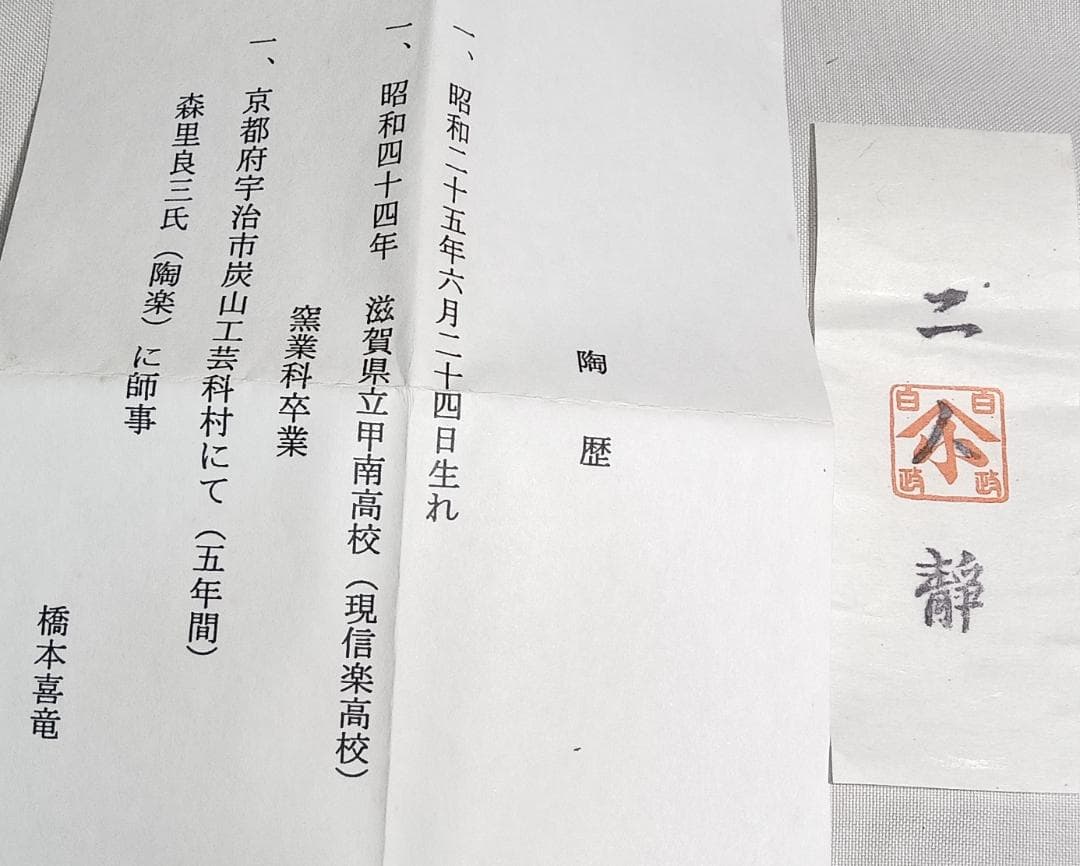 陶歴
一、昭和二十五年六月二十四日生れ
一、昭和四十四年 滋賀県立甲南高校（現信楽高校）
窯業科卒業
一、京都府宇治市炭山工芸科村にて（五年間）
森里良三氏（陶楽）に師事
橋本喜竜
静